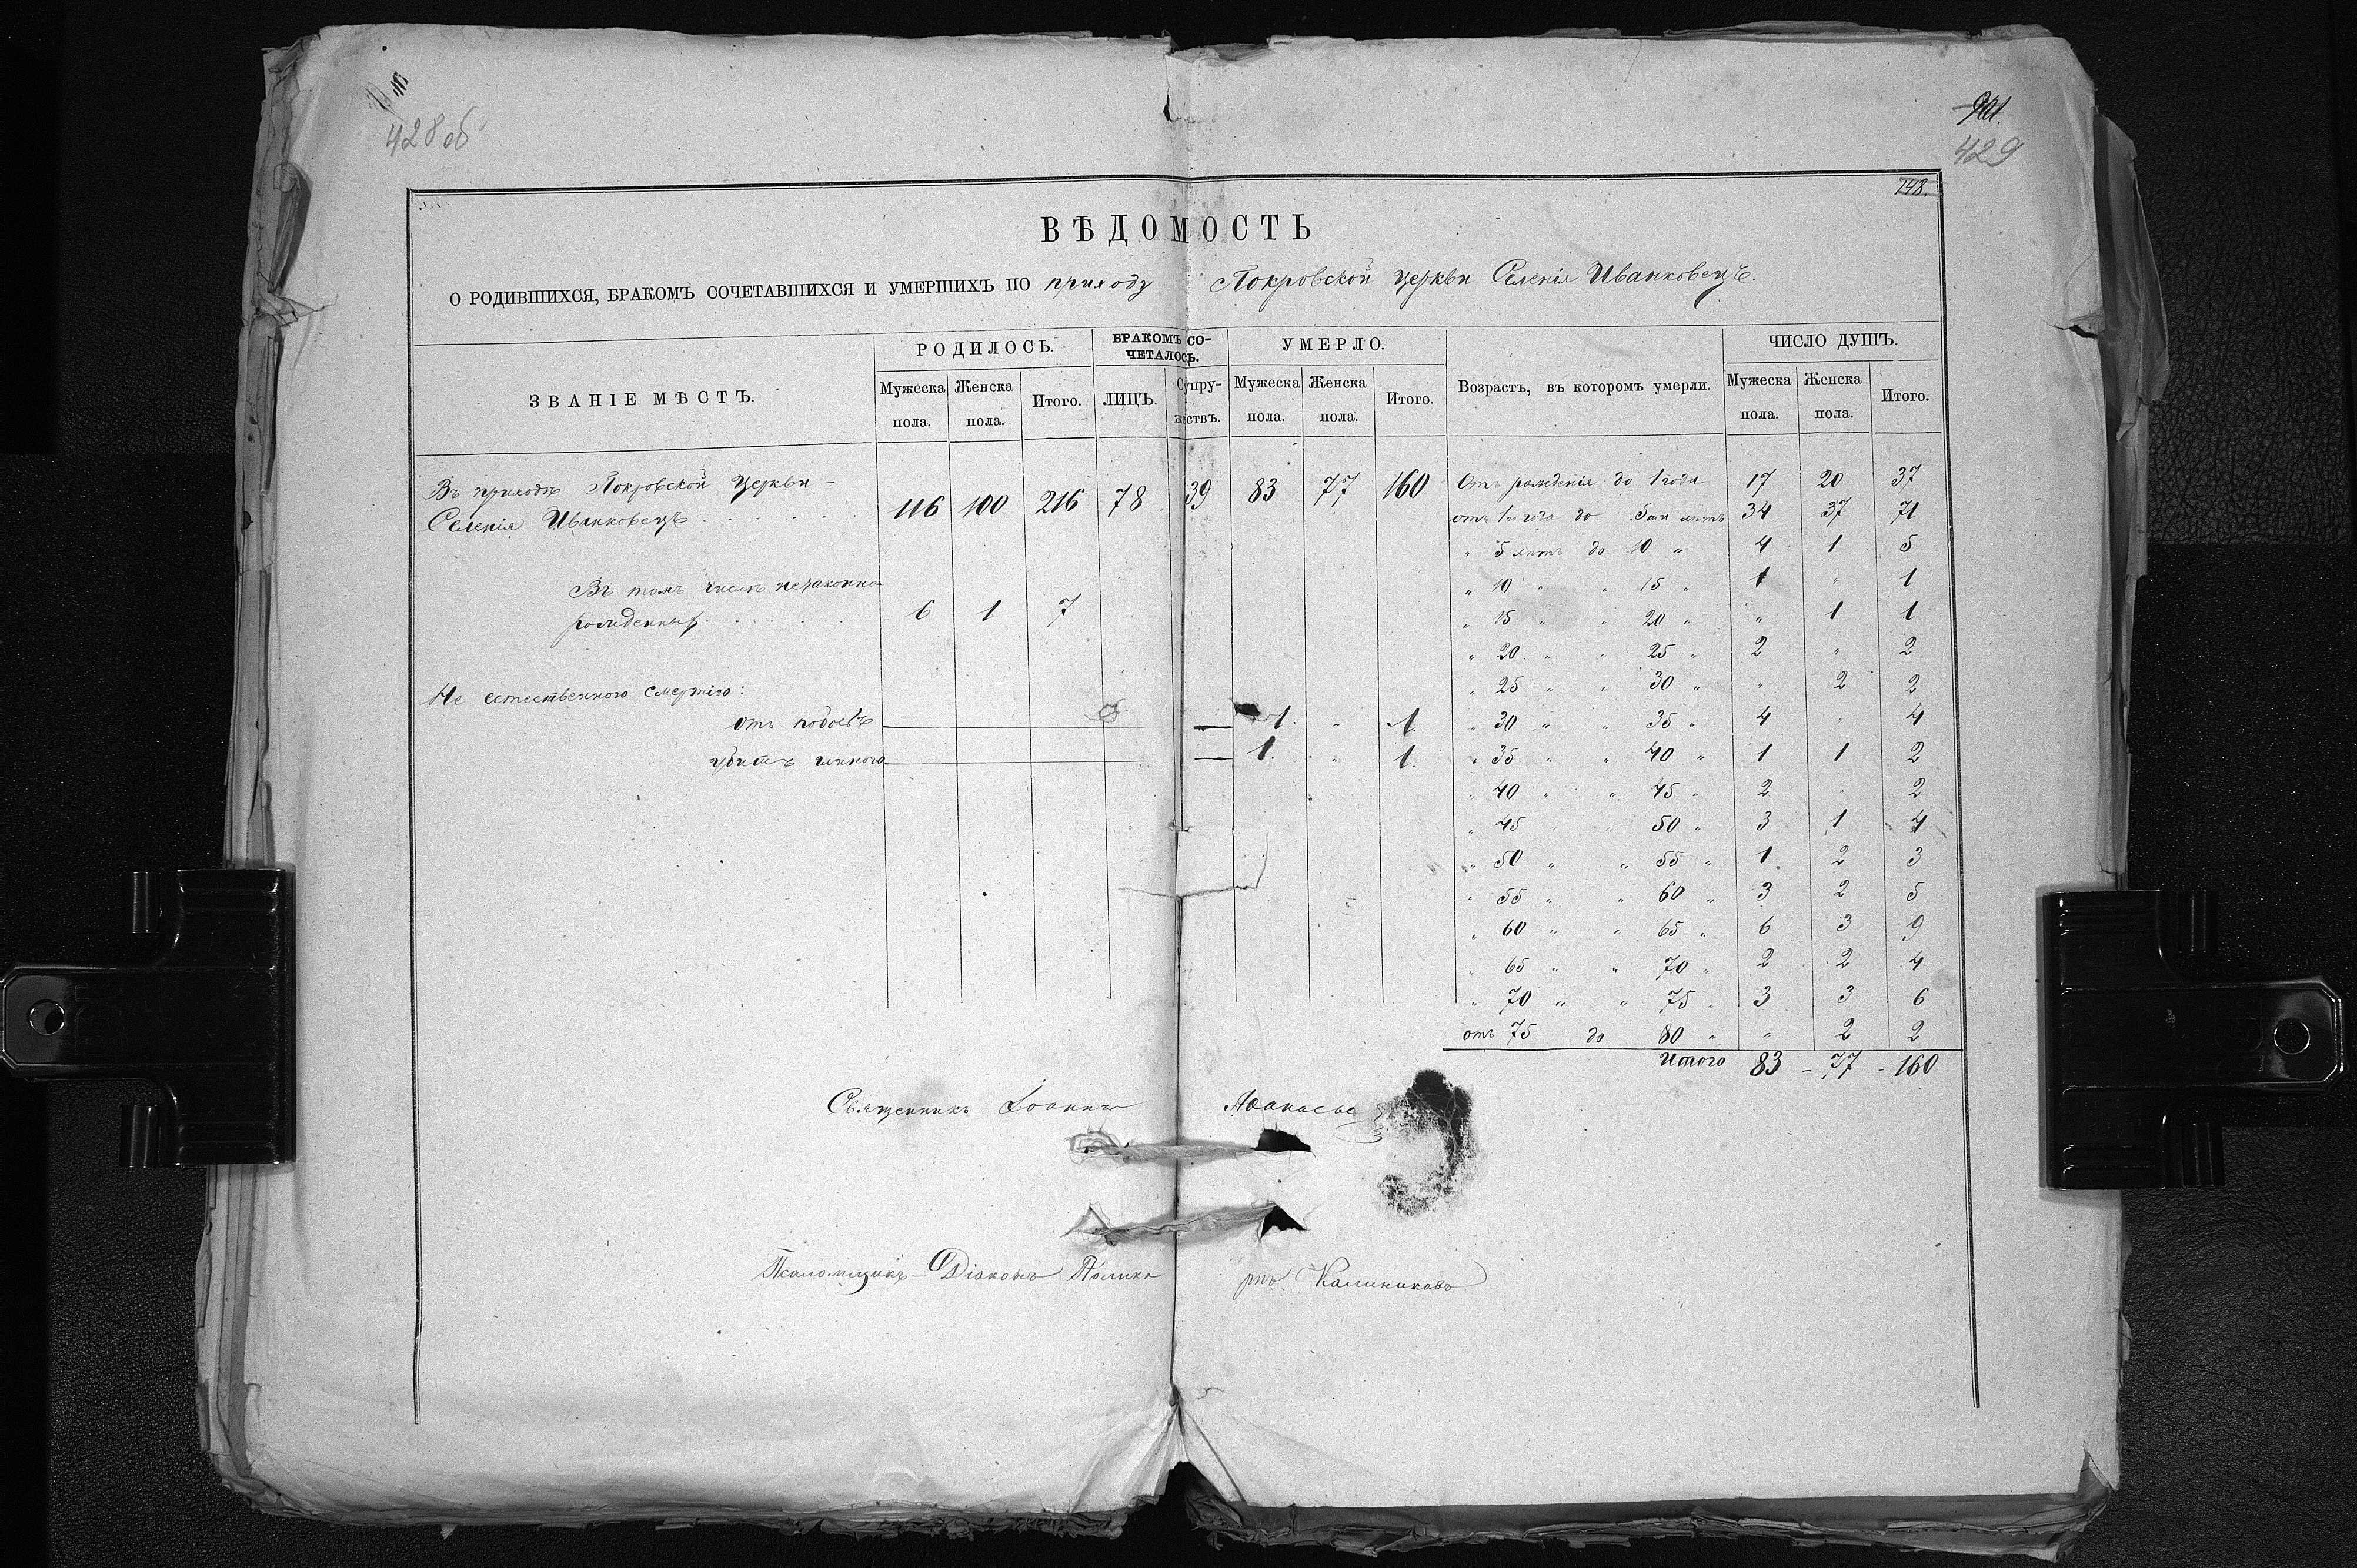 428 об
901.
429
748.
ВѢДОМОСТЬ
О РОДИВШИХСЯ, БРАКОМЪ СОЧЕТАВШИХСЯ И УМЕРШИХЪ ПО приходу Покровской церкви Селенія Иванковецъ.
ЗВАНІЕ МѢСТЪ. РОДИЛОСЬ. БРАКОМЪ СО-ЧЕТАЛОСЬ. УМЕРЛО. Возрастъ, въ которомъ умерли. ЧИСЛО ДУШЪ.
Мужеска пола. Женска пола. Итого. ЛИЦЪ. Супру-жествъ. Мужеска пола. Женска пола. Итого. Мужеска пола. Женска пола. Итого.
Въ приходѣ Покровской Церкви -
Селенія Иванковецъ . . . . . 116 100 216 78 39 83 77 160
Въ томъ числѣ незаконно
рожденныхъ . . . . . 6 1 7
Не естественною смертію:
отъ побоевъ — — 1. " 1.
убитъ — — 1. " 1.
Отъ рожденія до 1 года 17 20 37
отъ 1го года до 5ти лѣтъ 34 37 71
" 5 лѣтъ до 10 " 4 1 5
" 10 " " 15 " 1 " 1
" 15 " " 20 " " 1 1
" 20 " " 25 " 2 " 2
" 25 " " 30 " " 2 2
" 30 " " 35 " 4 " 4
" 35 " " 40 " 1 1 2
" 40 " " 45 " 2 " 2
" 45 " 50 " 3 1 4
" 50 " " 55 " 1 2 3
" 55 " " 60 " 3 2 5
" 60 " " 65 " 6 3 9
" 65 " " 70 " 2 2 4
" 70 " " 75 " 3 3 6
отъ 75 до 80 " " 2 2
Итого 83 - 77 - 160
Священникъ Іоаннъ
Псаломщикъ-Діаконъ